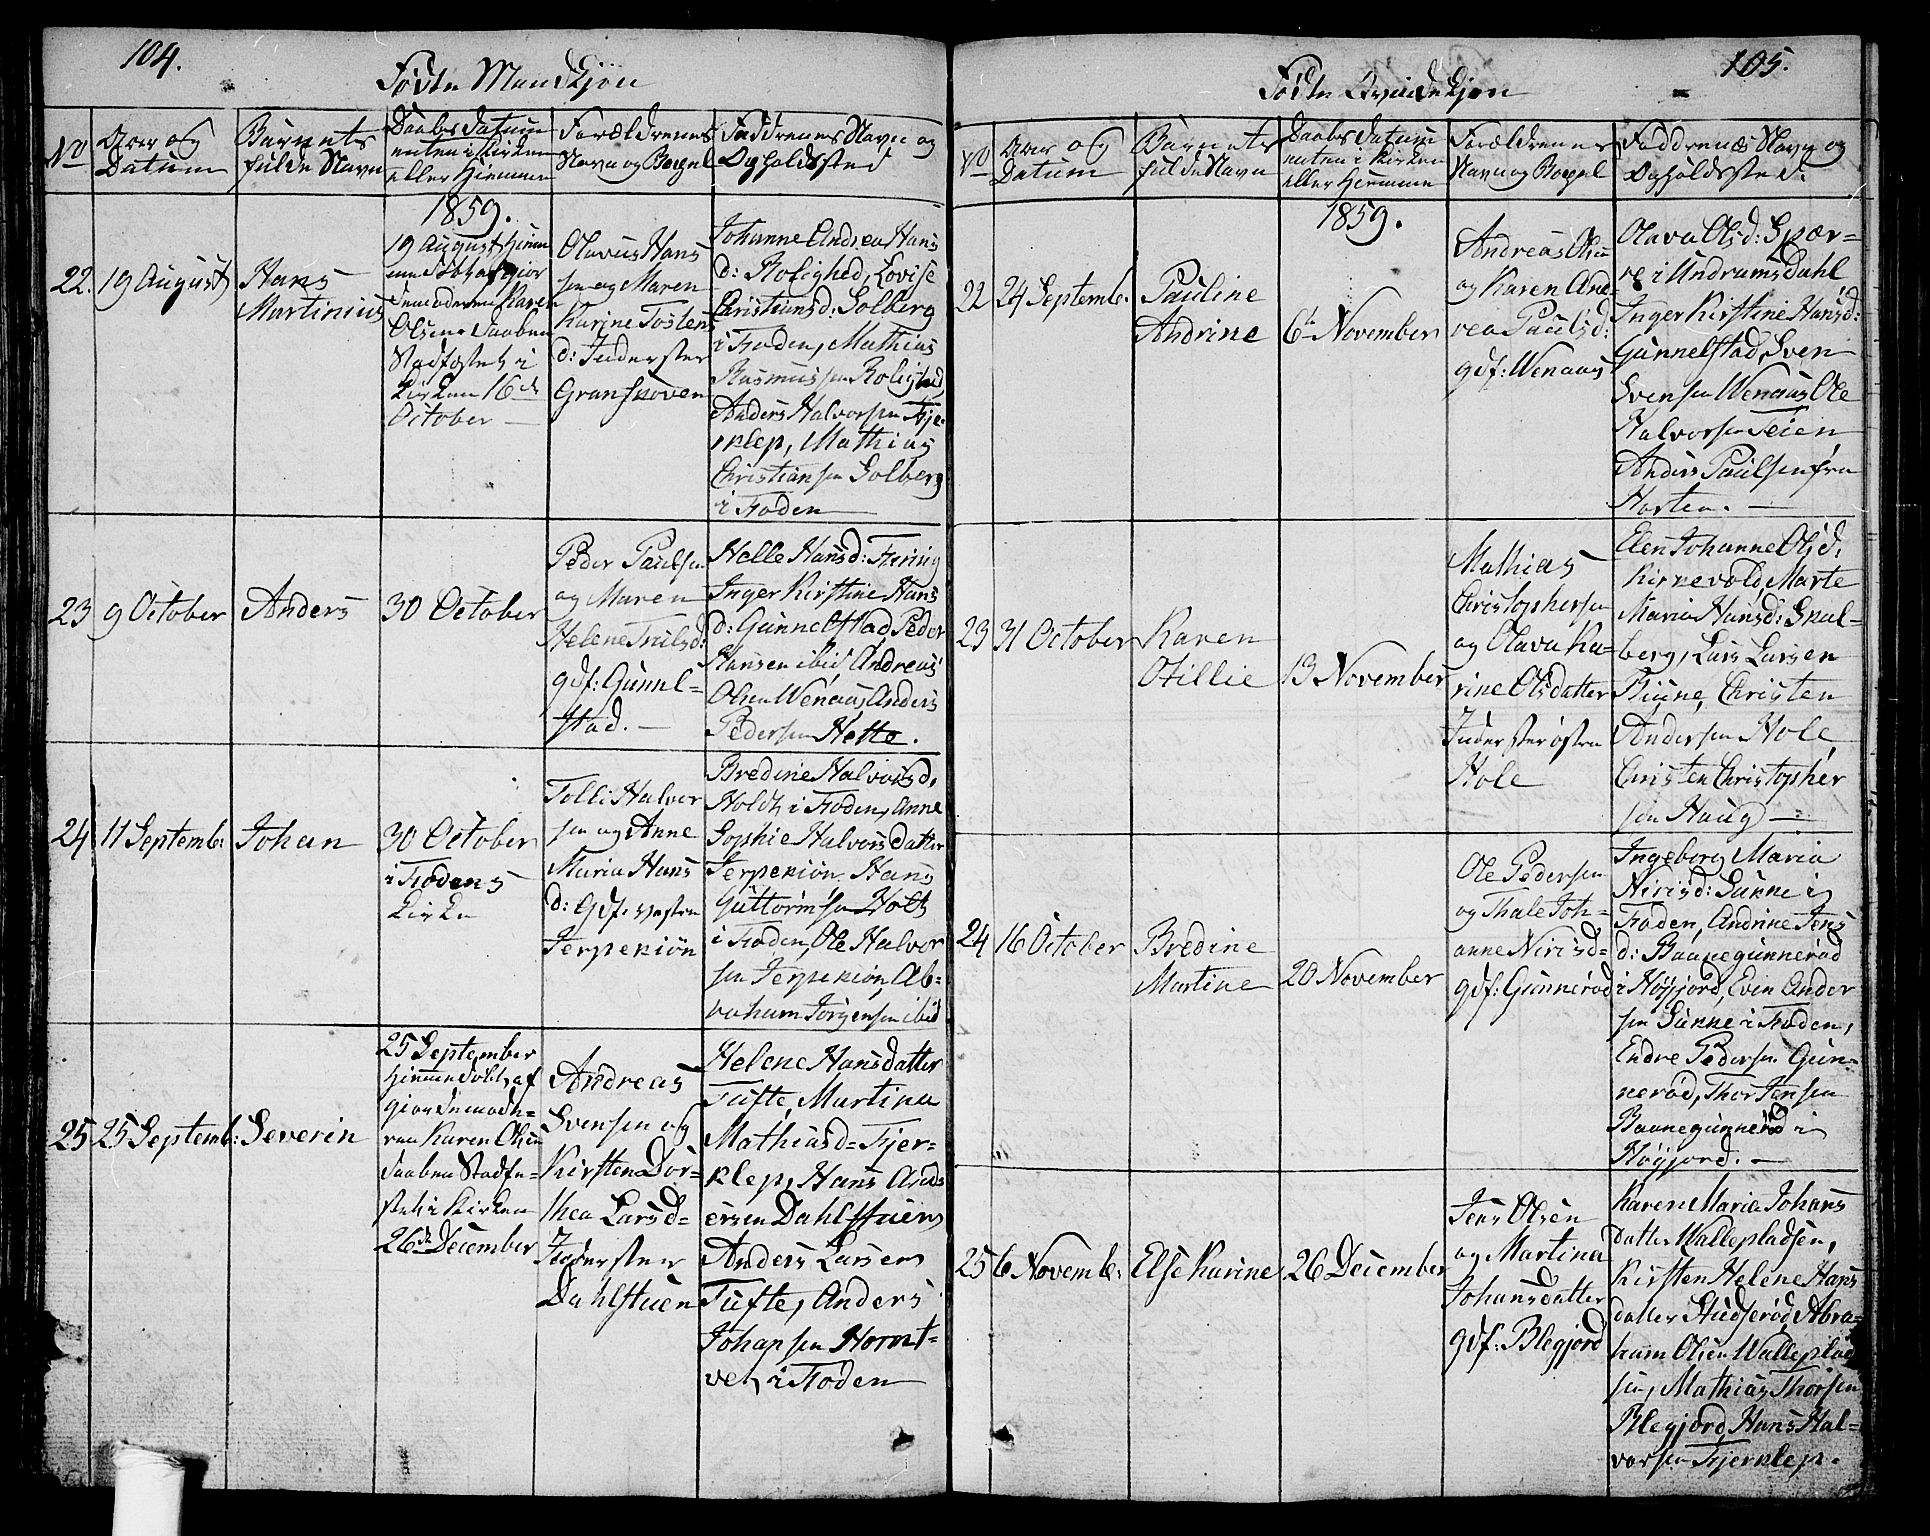 104.
Fødte Mandkjøn
No
Aar og
Datum
Barnets
fulde Navn
Daabs Datum
enten i Kirken
eller Hiemme
Forældrenes
Navn og Bopel
Faddrenes Navn og
Opholdssted
1859.
22.
19 August
Hans
Martinius
19 August hiem
me døbt af gior
demoderen Karen
Olsen Daaben
Stadfæstet i
Kirken 16de
October
Olavus Hans
sen og Maren
Karine Tosten
d: Inderster
Granskoven
Johanne Andrea Hans
d: Rolighed, Lovise
Christiansd: Solberg
i Foden, Mathias
Rasmussen Rolighed
Anders Halvorsen Fje-
rklep, Mathias
Christiansen Solberg
i Foden
23
9 October
Anders
30 October
Peder Paulsen
og Maren
Helene Truls d:
gdf: Gunnel-
stad.
Helle Hansd:
Inger Kirstine Hans
d: Gunnelstad, Peder
Hansen ibid Andreas
Olsen Wenaas, Anders
Pedersen Hotte.
24
11 Septemb:
Johan
30 October
i Fodens
Kirke
Tolli Halvor
sen og Anne
Maria Hans
d: Gdf: vestre
Jerpekiøn
Bredine Halvorsd,
Holdt i Foden, Anne
Sophie Halvorsdatter
Jerpekiøn Hans
Guttormsen Holt
i Foden, Ole Halvor
sen Jerpekiøn, Ab-
raham Jørgensen ibid
25
25 Septemb:
Severin
25 September
hiemme døbt af
giordemode-
ren Karen Olsen
daaben Stadfæ-
stet i Kirken
26de December
Andreas
Svensen og
Kirsten Dor-
thea Larsd=
Inderster
Dahlstuen
Helene Hansdatter
Tufte, Martina
Mathiasd= Fjer-
klep, Hans And
ersen Dahlstuen
Anders Larsen
Tufte, Anders
Johansen Hornt-
vet, i Foden
105.
Fødte Qvindekjøn
No
Aar og
Datum
Barnets
fulde Navn
Daabs Datum
enten i Kirken
eller Hiemme
Forældrenes
Navn og Bopel
Faddrenes Navn og
Opholdssted.
1859.
22
24 Septemb.
Pauline
Andrine
6te November
Andreas Olsen
og Karen And-
rea Paulsd:
gdf: Wenaas
Olava Olsd: Spær-
re i Undrumsdahl
Inger Kirstine Hansd:
Gunnelstad, Sven
Svensen Wenaas Ole
Halvorsen Teien
Anders Paulsen fra
Horten.
23
31 October
Karen
Otillie
13 November
Mathias
Christophersen
og Olava Ka-
rine Olsdatter
Inderster østre
Hole
Elen Johanne Olsd,
Kirkevold, Marte
Maria Hansd: Skal-
berg, Lars Larsen
Fuine, Christen
Andersen Hole,
Christen Christopher
sen Haug
24
16 October
Bredine
Martine
20 November
Ole Pedersen
og Thale Joh-
anne Nirisd-
gdf: Gunnerød
Ingeborg Maria
Nirisd: Sunne i
Foden, Andrine Jens
d: Baanegunnerød
i Høyjord, Even Ander
sen Sunne i Foden,
Endre Pedersen Gun-
nerød, Thor Jansen
Baanegunnerød i
Høyjord.
25
6 Novemb:
Else Karine
26 December
Jens Olsen
og Martina
Johansdatter
gdf: Blegjord
Karen Maria Johans
datter Wallepladsen,
Kirsten Helene Hans
datter Studserød, Abra-
ham Olsen Wallepla
sen, Mathias Thorsen
Blegjord, Hans Hal-
vorsen Fjerklep.